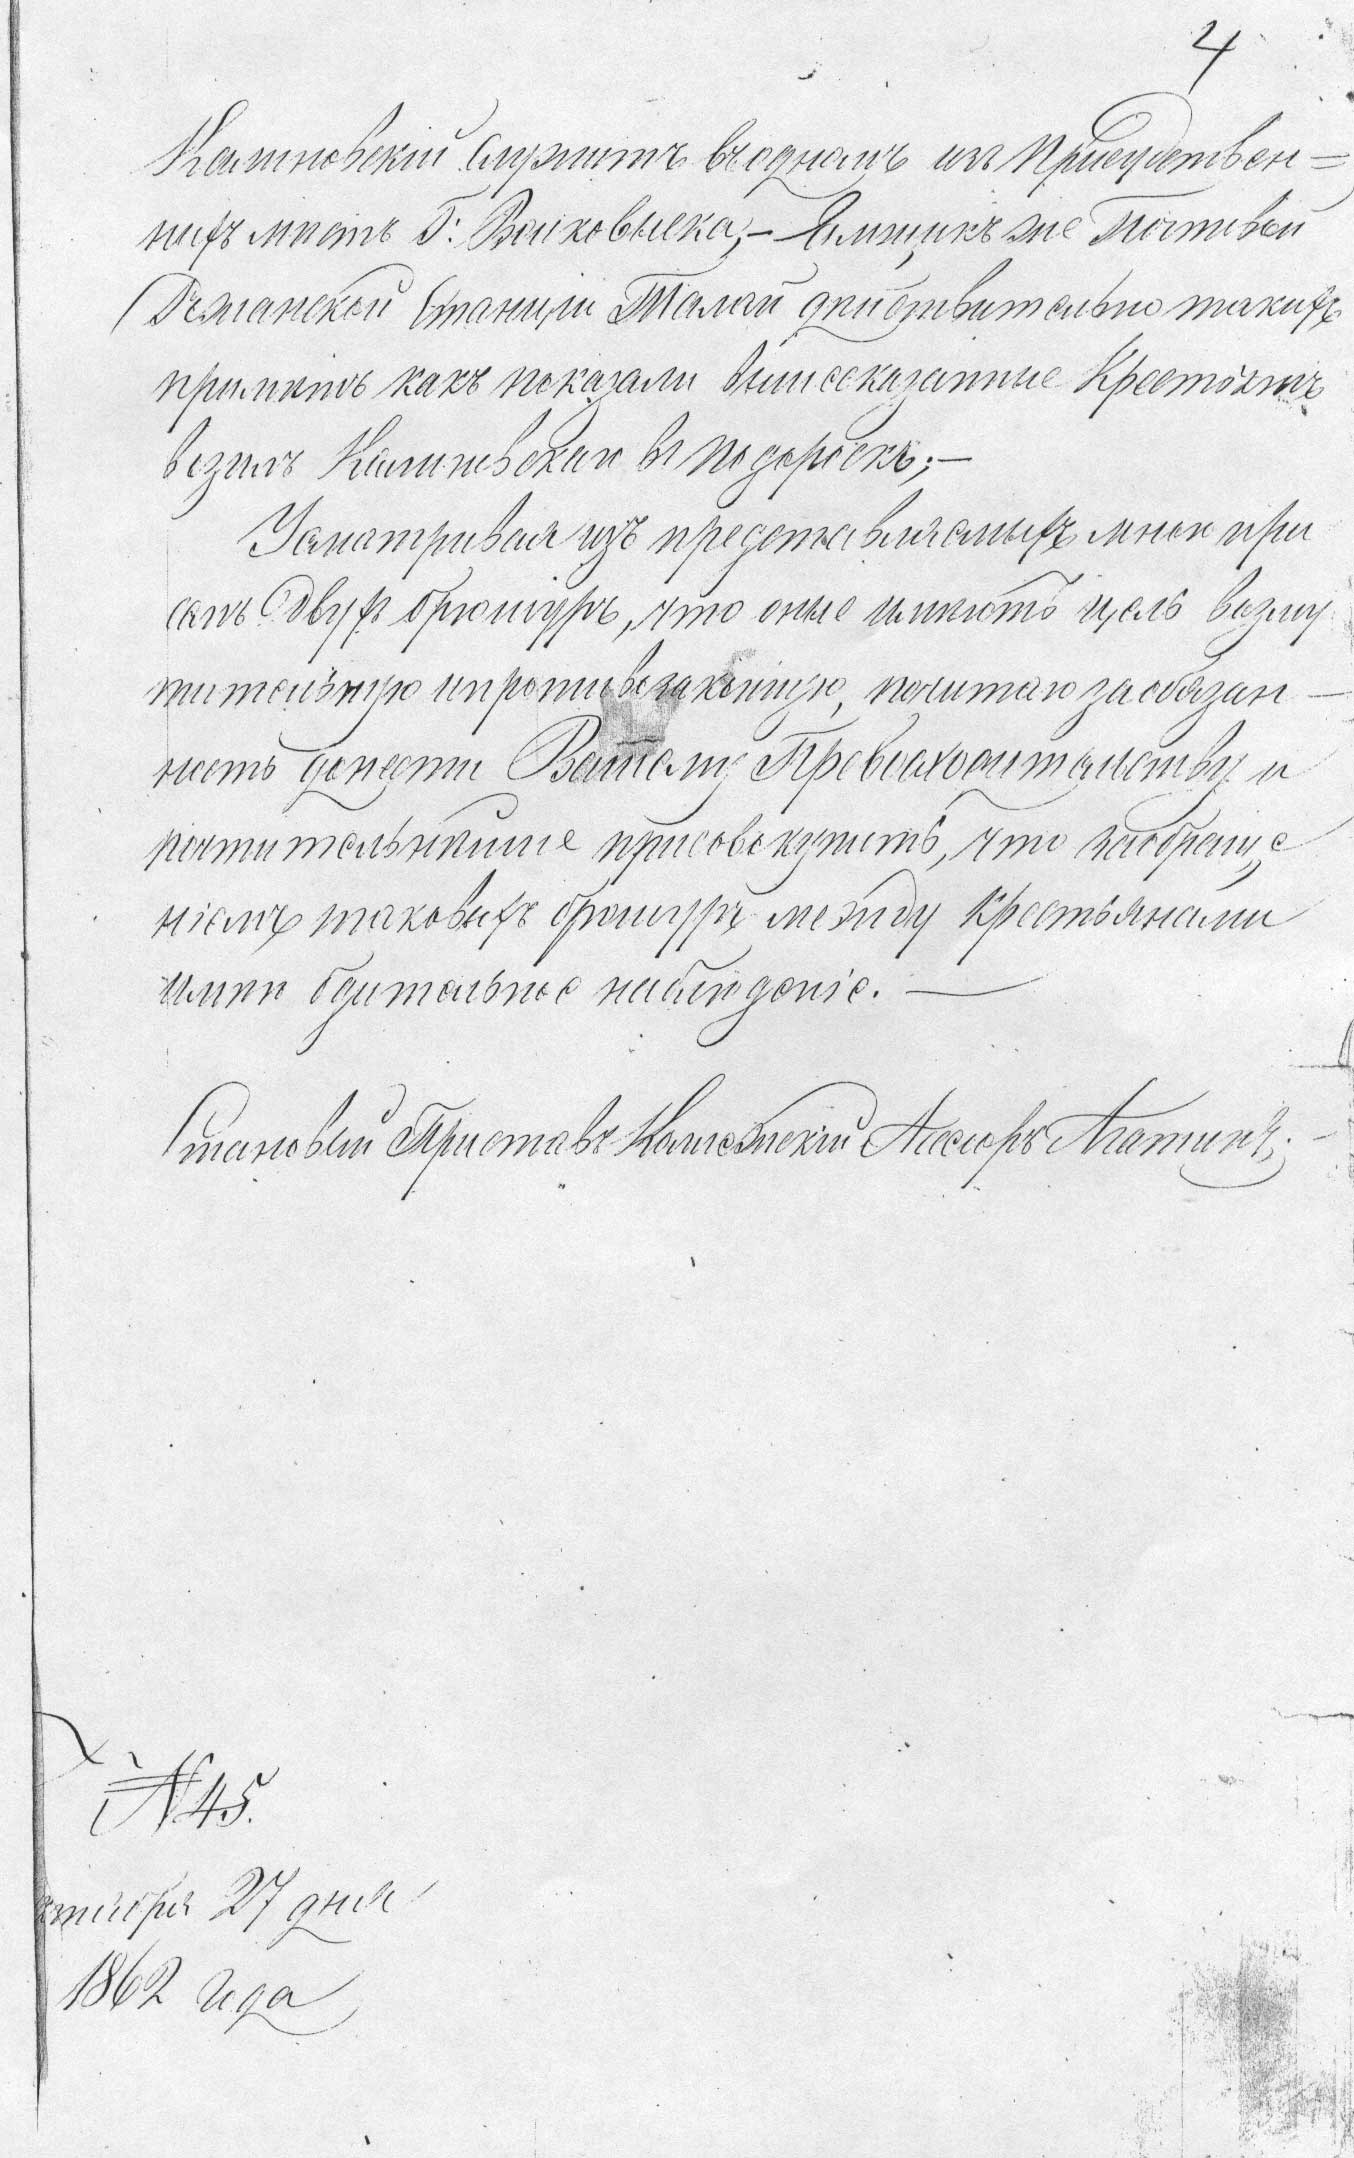 4
Калиновскій служитъ въ одномъ изъ Присудствен=
ныхъ мѣстъ Г: Волковыска;— Ямщикъ же Почтовой
Станціи Талай дѣйствительно такихъ
примѣтъ какъ показали вышесказанные Крестьянъ
возилъ Калиновскаго въ Подороскъ;—
Усматривая изъ представляемыхъ мною при
семъ двухъ брошюръ, что оные имѣютъ цель возму
тительную и противозаконную, почитаю за обязан—
ность донести Вашему Превосходительству и
почтительнѣйше присовокупить, что за обраще
ніемъ таковыхъ брошюръ между Крестьянами
имѣю бдительное наблюденіе. —
Становый Приставъ Колежскій Ассесоръ
№ 45.
ктября 27 дня
1862 года